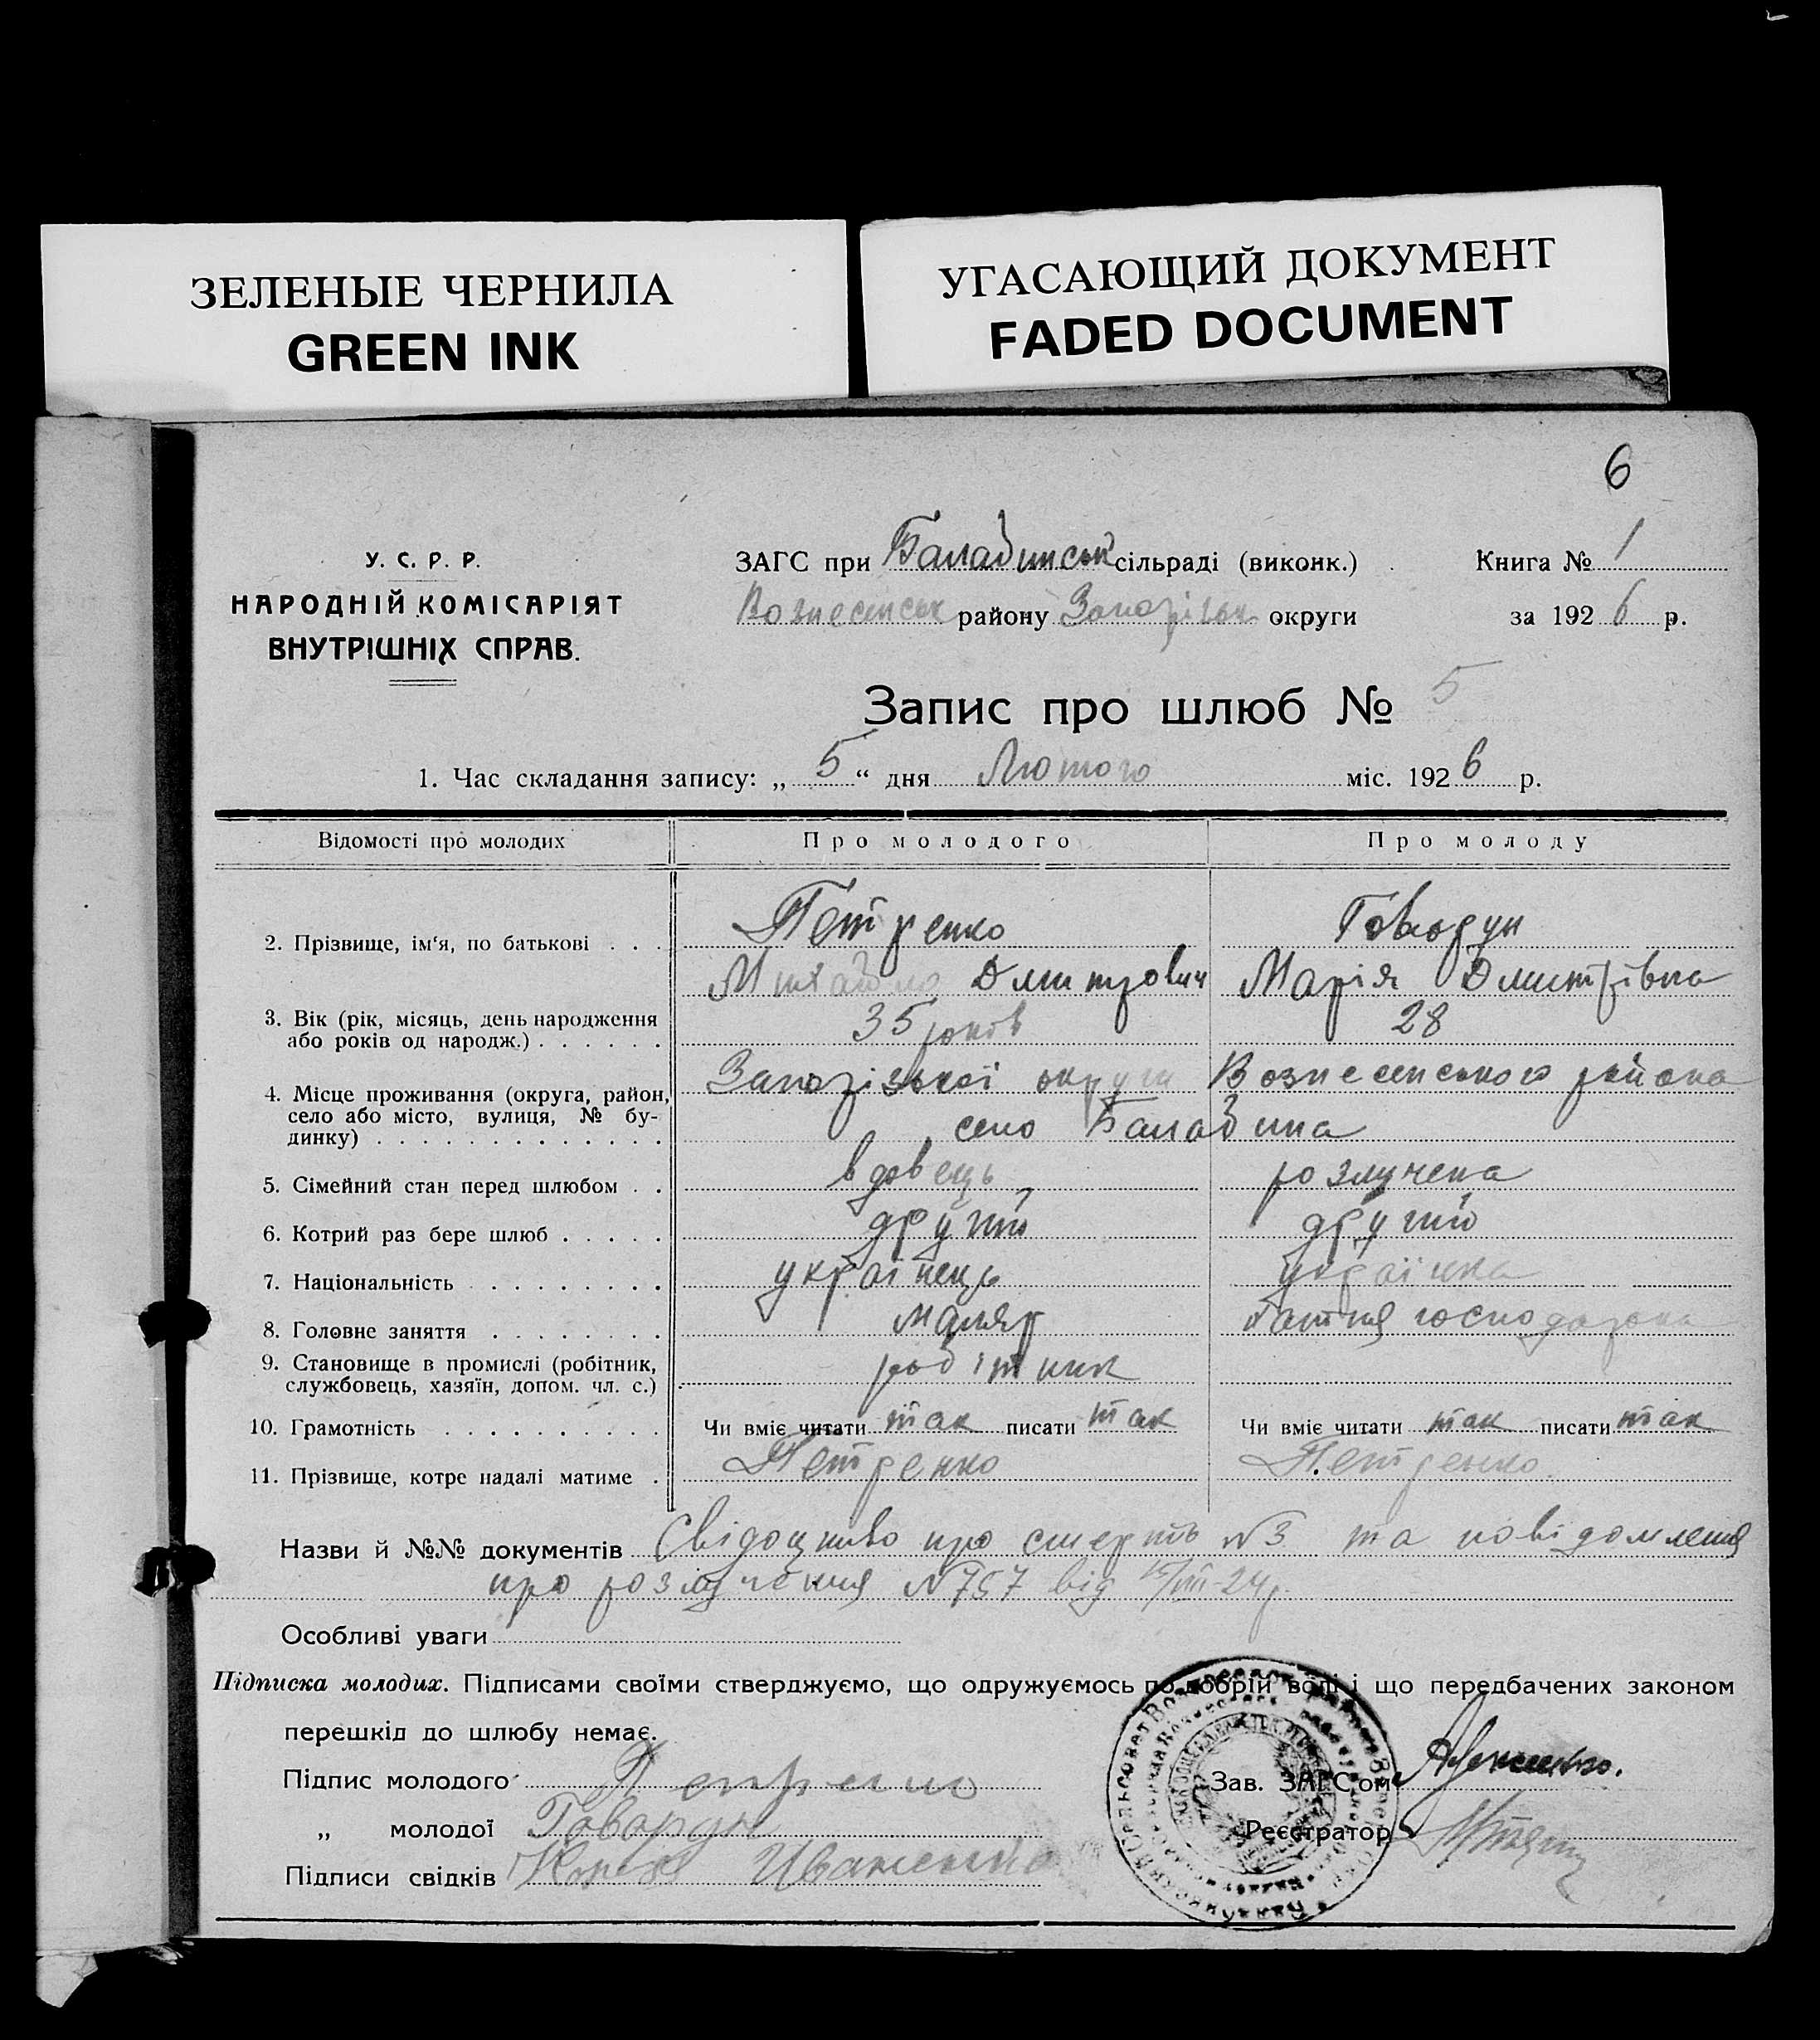 ЗЕЛЕНЫЕ ЧЕРНИЛА
GREEN INK
УГАСАЮЩИЙ ДОКУМЕНТ
FADED DOCUMENT
6
У. С. Р. Р.
НАРОДНІЙ КОМІСАРІЯТ
ВНУТРІШНІХ СПРАВ.
ЗАГС при Балабинськ сільраді (виконк.) Книга № 1
Вознесенськ району Запорізьк округи за 1926 р.
Запис про шлюб № 5
1. Час складання запису: „5“ дня Лютого міс. 1926 р.
Відомості про молодих Про молодого Про молоду
2. Прізвище, ім'я, по батькові . . . Петренко Говорун
Михайло Дмитрович Марія Дмитрівна
3. Вік (рік, місяць, день народження
або років од народж.) . . . . . . 35 років 28
4. Місце проживання (округа, район, Запорізької округи Вознесенського района
село або місто, вулиця, № бу-
динку) . . . . . . . . . . . . . село Балабина
5. Сімейний стан перед шлюбом . . вдовець розлучена
6. Котрий раз бере шлюб . . . . . другий другий
7. Національність . . . . . . . . . українець українка
8. Головне заняття . . . . . . . . маляр хатня господарка
9. Становище в промислі (робітник,
службовець, хазяїн, допом. чл. с.) робітник
10. Грамотність . . . . . . . . . . Чи вміє читати так писати так Чи вміє читати так писати так
11. Прізвище, котре надалі матиме . Петренко Петренко
Назви й №№ документів Свідоцтво про смерть №3 та повідомленя
про розлучення №757 від 15/III-24р.
Особливі уваги
Підписка молодих. Підписами своїми стверджуємо, що одружуємось по добрій волі і що передбачених законом
перешкід до шлюбу немає.
Підпис молодого Петренко
Зав. ЗАГС'ом
„ молодої Говорун
Реєстратор
Підписи свідків Иваненко